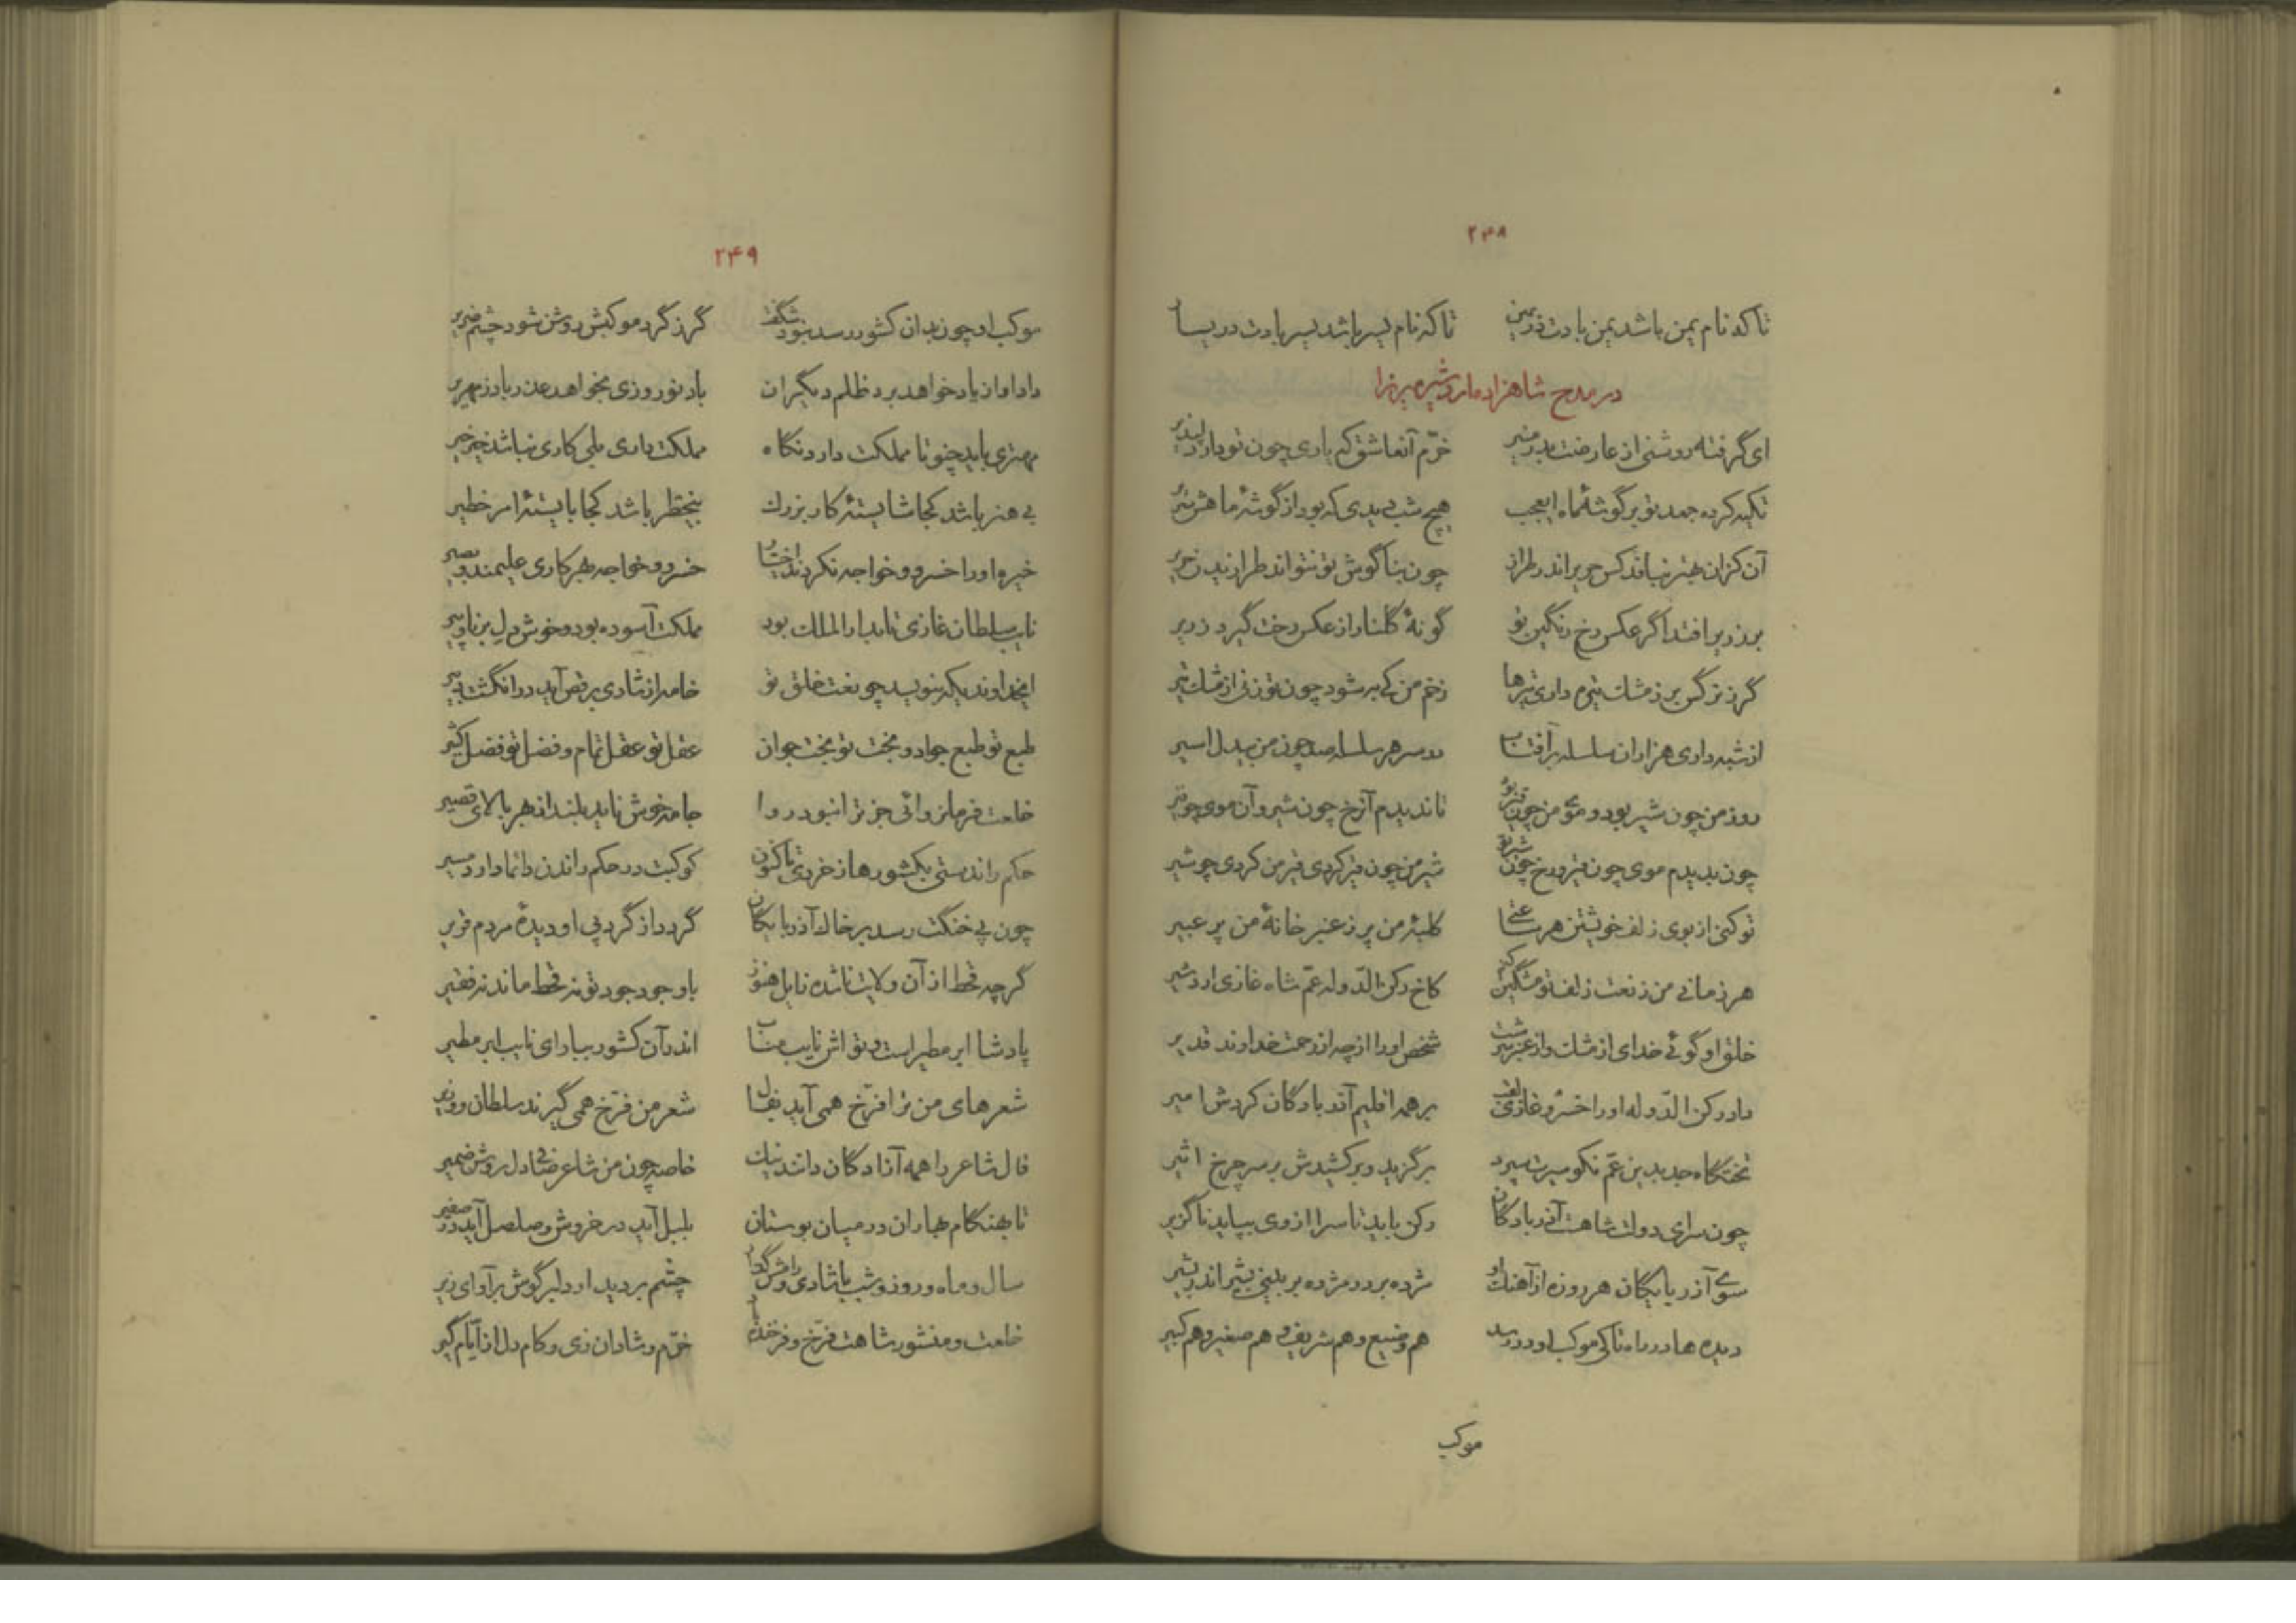 ۲۴۸
تا که نام یمن باشد یمن بادت در یمین تا که نام یسر باشد یسر بادت در یسار
در مدح شاهزاده اردشیر میرزا
ای گرفته روشنی از عارضت بدر منیر خرّم آنعاشق که یاری چون تو دارد دلپذیر
تکیه کرده جعد تو بر گوشهٔ ماه ایعجب هیچ شب دیدی که بود از گوشهٔ ماهش سریر
آن کزان بهتر نبافد کس حریر اندر طراز چون بناگوش تو نتواند طرازیدن حریر
بر زریر افتد اگر عکس رخ رنگین تو گونهٔ گلنار از عکس رخت گیرد زریر
گرز نرگس بر ز مشک تیره داری تیرها زخم من کی به شود چون تو زنی از مشک تیر
از شبه داری هزاران سلسله بر آفتاب در سر هر سلسله صد چون من بیدل اسیر
روز من چون شیر بود و موی من چون قیر بود تا ندیدم آن رخ چون شیر و آن موی چو قیر
چون بدیدم موی چون قیر و رخ چون شیر تو شیر من چون قیر کردی قیر من کردی چو شیر
تو کنی از بوی زلف خویشتن هر ساعتی کلبهٔ من پر ز عنبر خانهٔ من پر عبیر
هر زمانی من ز نعت زلف تو مشگین کنم کاخ رکن الدّوله عمّ شاه غازی اردشیر
خلق او گوئی خدای از مشک و از عنبر سرشت شخص او را از چه از رحمت خداوند قدیر
داد رکن الدّوله او را خسرو غازی لقب بر همه اقلیم آذربادگان کردش امیر
تختگاه جد بدین عمّ نکو سیرت سپرد برگزید و برکشیدش بر سر چرخ اثیر
چون سرای دولت شاهست آذربادگان رکن باید تا سرا از وی بپاید ناگزیر
سوی آذربایگان هر روزه از آهنگ او مژده بر در مژده بر بینی بشیر اندر بشیر
دیده ها در راه تا کی موکب او در رسد هم وضیع و هم شریف و هم صغیر و هم کبیر
موکب
۲۴۹
موکب او چون بدان کشور رسد نبود شگفت گر ز گرد موکبش روشن شود چشم ضریر
داد او از یاد خواهد برد ظلم دیگران باد نوروزی بخواهد عذر باد زمهریر
مهتری باید چنو تا مملکت دارد نگاه مملکت داری بلی کاری نباشد خیر خیر
بی هنر باشد کجا شایستهٔ کار بزرگ بیخطر باشد کجا بایستهٔ امر خطیر
خیره او را خسرو و خواجه نکردند اختیار خسرو و خواجه بهر کاری علیمند و بصیر
نایب سلطان غازی تا بدار الملک بود مملکت آسوده بود و خوش دل برنا و پیر
ایخداوندیکه بنویسد چو نعت خلق تو خامه از شادی برقص آید در انگشت دبیر
طبع تو طبع جواد و بخت تو بخت جوان عقل تو عقل تمام و فضل تو فضل کثیر
خلعت فرمانروائی جز ترا نبود روا جامه خوش ناید بلند از بهر بالای قصیر
حکم راندستی بکشورها ز خردی تا کنون کوکبت در حکم راندن دائما دارد مسیر
چون پی خنگت رسد بر خاک آذربایگان گردد از گرد پی او دیدهٔ مردم قریر
گرچه قحط از آن ولایت ناشده زایل هنوز با وجود جود تو نه قحط ماند نه فقیر
پادشا ابر مطیر است و تو اش نایب مناب اندر آن کشور ببار ای نایب ابر مطیر
شعرهای من ترا فرّخ همی آید بفال شعر من فرّخ همی گیرند سلطان و وزیر
فال شاعر را همه آزادگان دانند نیک خاصه چون من شاعر صافی دل روشن ضمیر
تا بهنگام بهاران در میان بوستان بلبل آید در خروش و صلصل آید در صفیر
سال و ماه و روز و شب با شادی و رامش گذار چشم بر دیدار دلبر گوش بر آوای زیر
خلعت و منشور شاهت فرّخ و فرخنده باد خرّم و شادان زی و کام دل از ایّام گیر